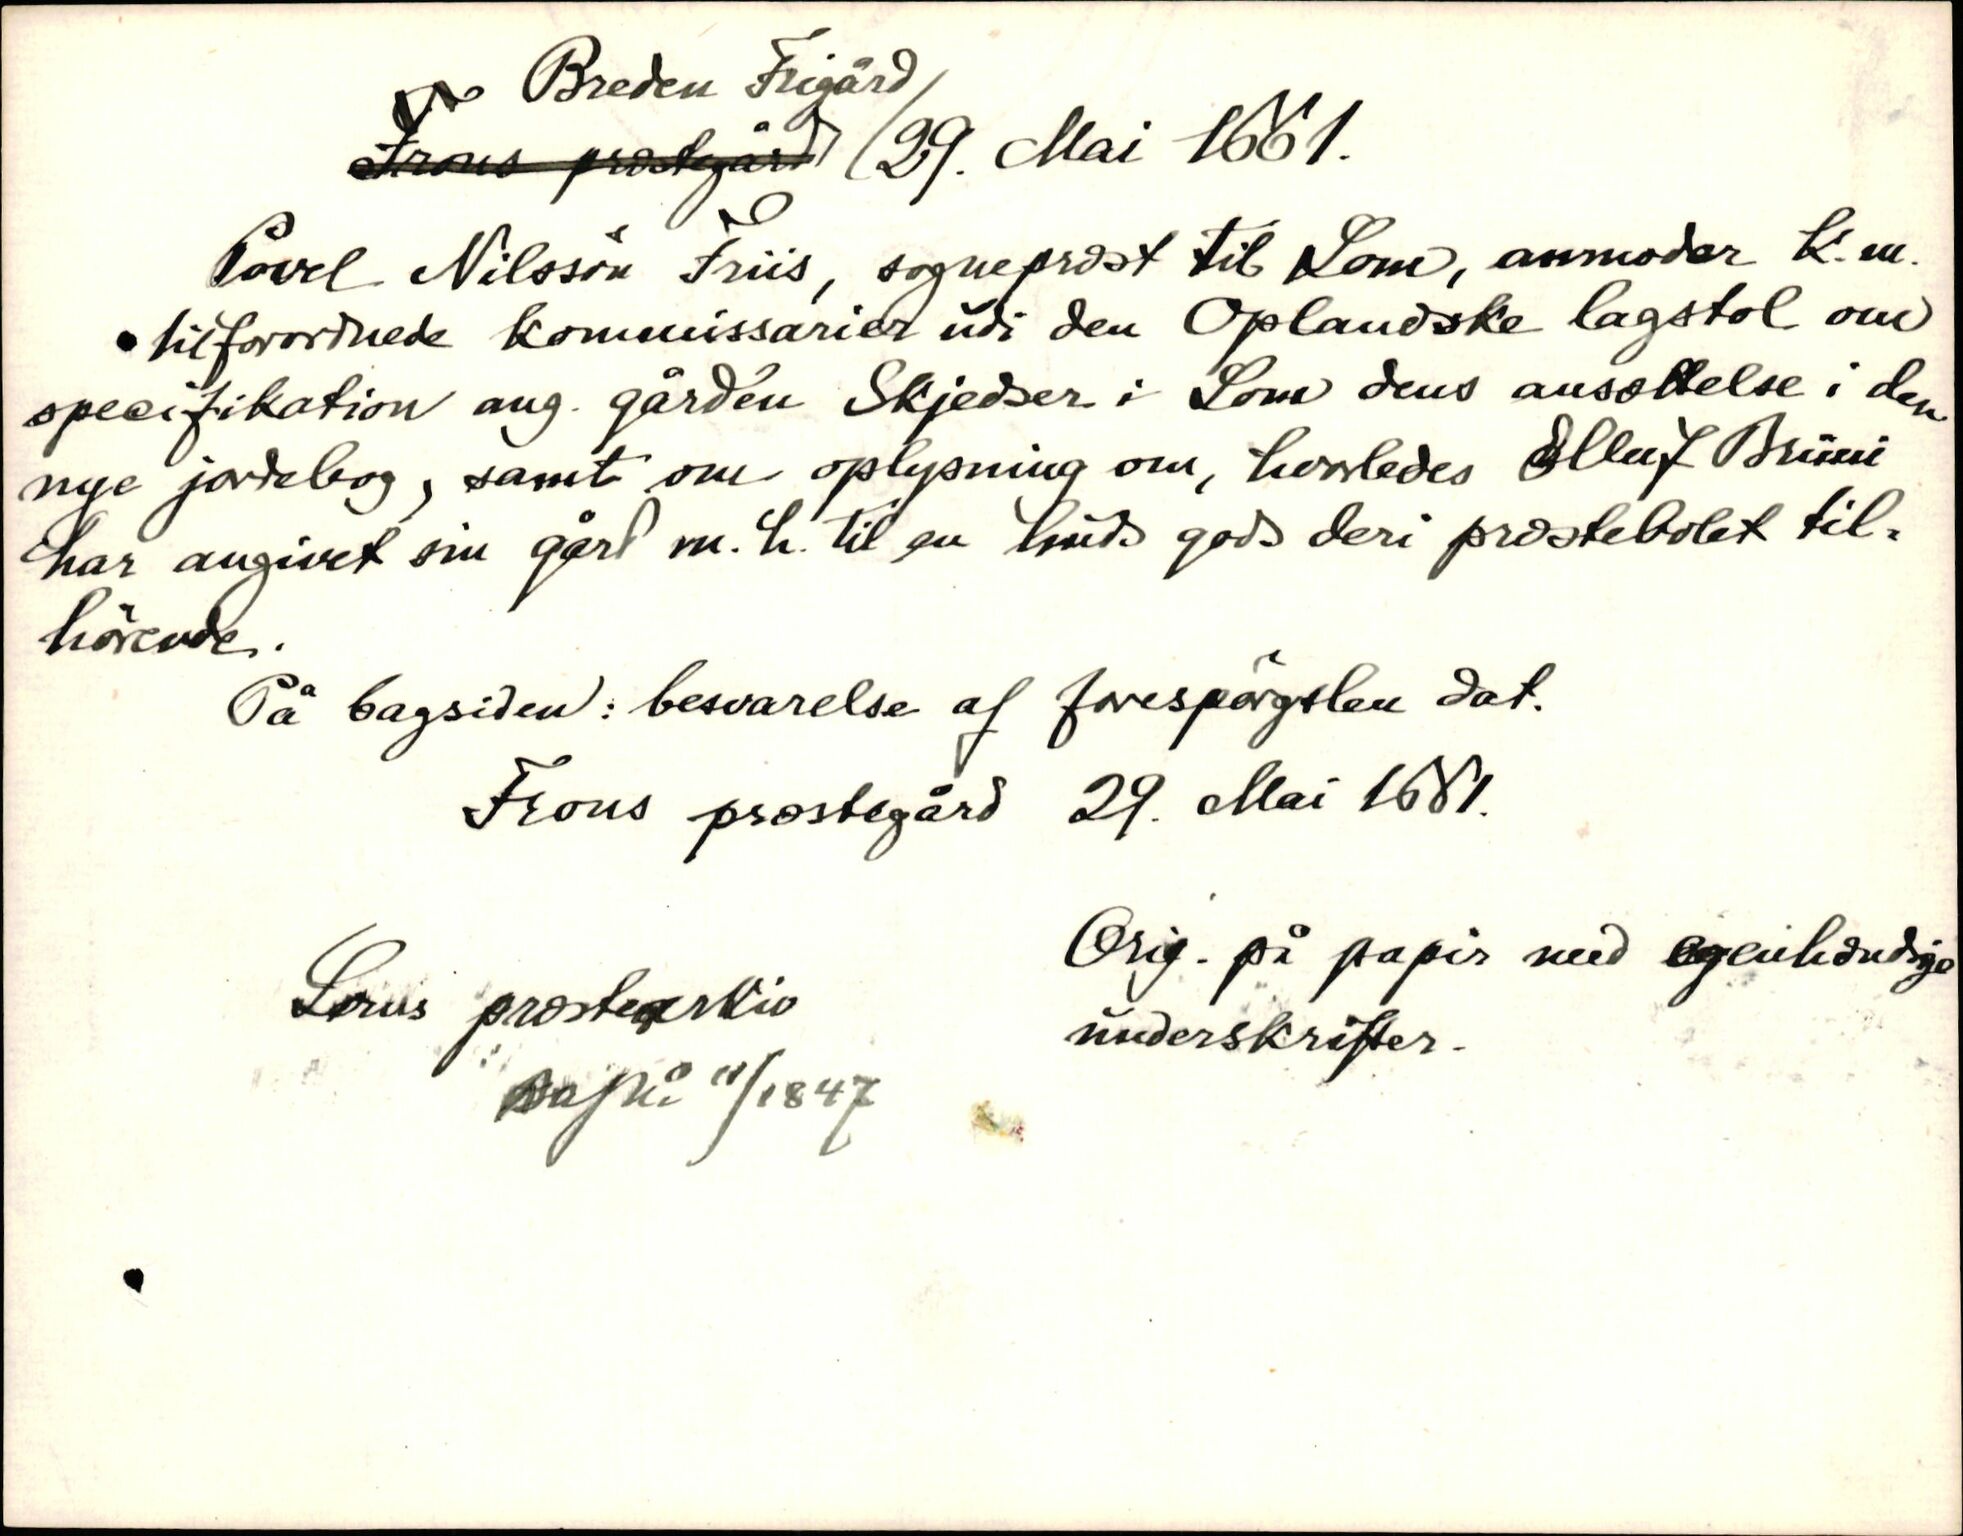 Breden Frigård
Frons præstegård 29. Mai 1661.
Povel Nilssön Friis, sognepræst til Lom, anmoder K. m.
tilforordnede kommissarier udi den Oplandske lagstol om
specifikation ang. gården Skjedser i Lom dens ansættelse i den
nye jordebog, samt om oplysning om, hvorledes Elluf Bruni
har angivet sin gård m. h. til en huds gods deri præstebolet til-
hörende.
På bagsiden: besvarelse af forespörgslen dat.
Frons præstegård 29. Mai 1661.
Orig. på papir med egenhændige
Loms præstearkiv
underskrifter.
11/1847